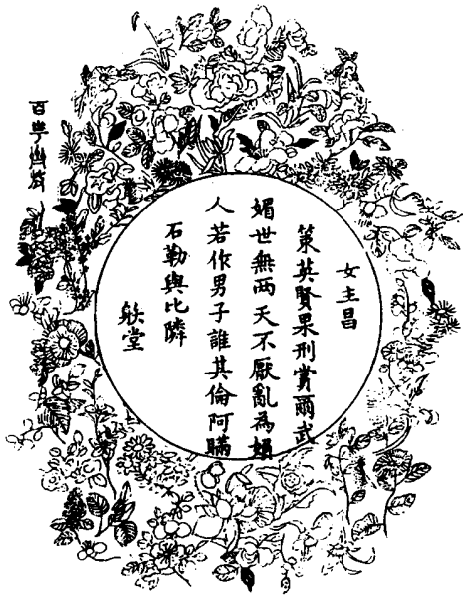 女主昌
策英賢果刑賞爾武
媚世無兩天不厭亂為媍
人若作男子誰其倫阿瞞
石勒與比隣
䠶堂
百